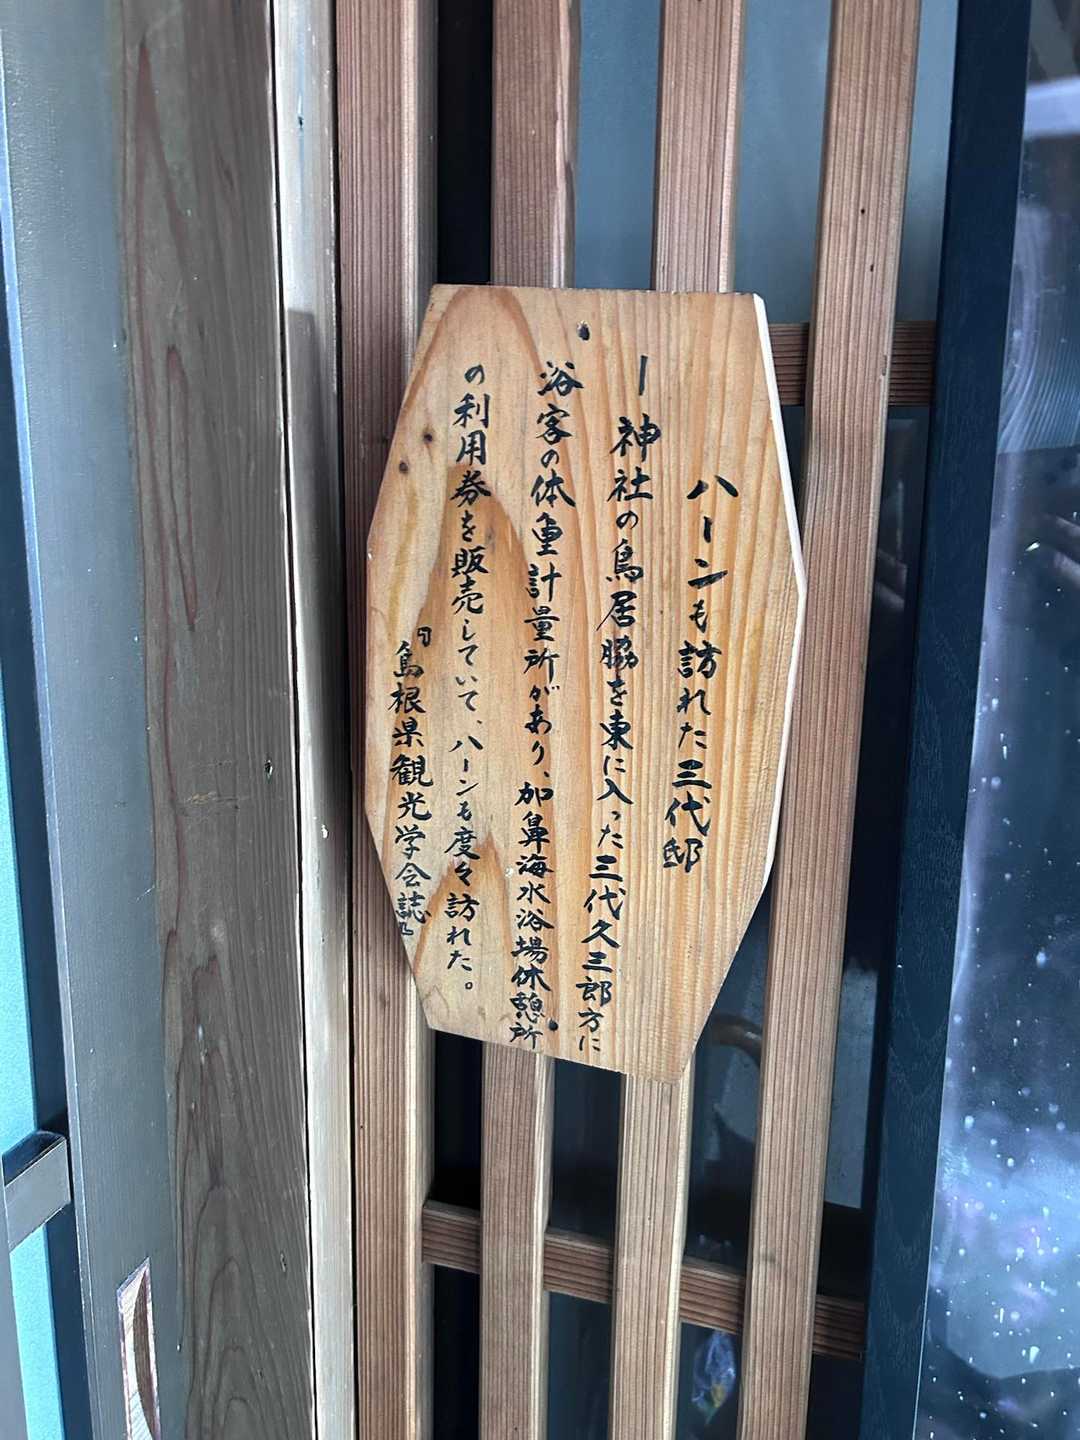 ハーンも訪れた三代邸
ー神社の鳥居脇を東に入った三代久三郎方に
浴客の体重計量所があり、加鼻海水浴場休憩所
の利用券を販売していて、ハーンも度々訪れた。
『島根県観光学会誌』